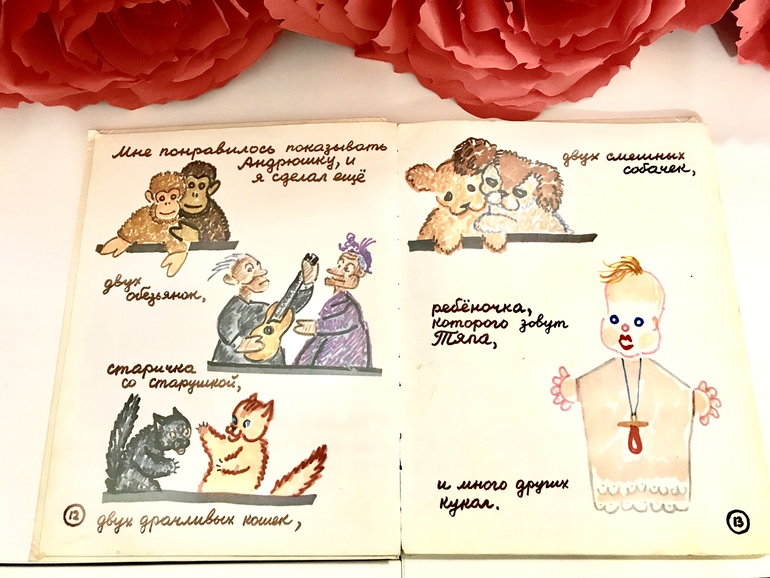 Мне понравилось показывать
Андрюшку, и
я сделал ещё
двух
обезьянок,
старичка
со старушкой,
двух драчливых кошек,
12
двух смешных
собачек,
ребёночка,
которого зовут
Тяпа,
и много других
кукол.
13